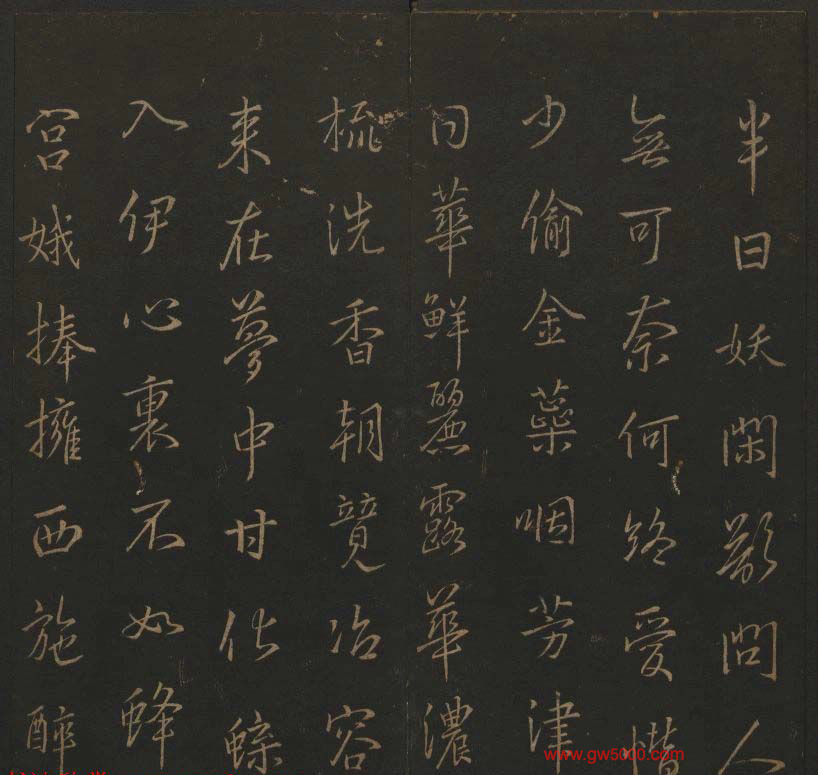 半日妖閑問人
無可奈何終愛惜
少偷金蘂咽芳津
日華鮮麗露華濃
梳洗香朝競冶容
来在夢中甘化
入伊心裏不如蜂
宮娥捧擁西施醉
www.gw5000.com